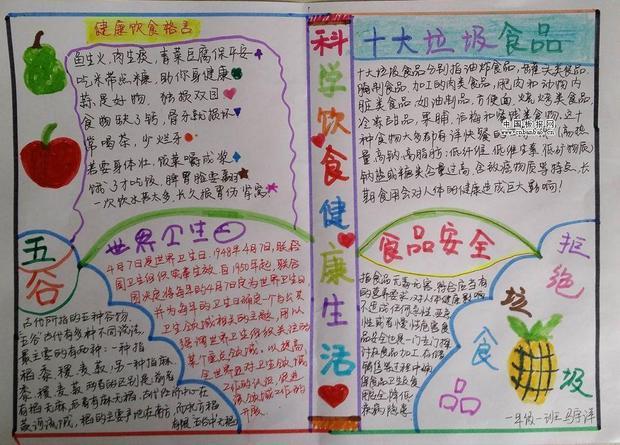 健康饮食格言
鱼生火,肉生痰,青菜豆腐保平安
吃米带点糠,助你身健康
蒜是好物,独损双目
食物缺了钙,骨头就损坏
常喝茶,少烂牙
若要身体壮,饭菜嚼成浆
饿了才吃饭,脾胃脸
一次饮水莫太多,长久
科学饮食健康生活
十大垃圾食品
十大垃圾食品分别指油炸食品、罐头类食品、
腌制食品、加工的肉类食品、肥肉和动物内
脏类食品、奶油制品、方便面、烧烤类食品、
冷冻甜品、果脯、话梅和蜜饯类食物,这十
种食物大多都有
中国板报网
(高热
量高钠、高脂肪;低纤维、低维生素、低矿物质)
钠盐或糖类含量过高,含致癌物质等特点,长
期食用会对人体的健康造成巨大影响!
世界卫生日
4月7日是世界卫生日,1948年4月7日,联合
国卫生组织
1950年起,联合
国决定将每年的4月7日定为世界卫生日
并为每年的卫生日确定一个与公共
卫生领域相关的主题,用以
强调世界卫生组织关注的
某个重点领域,以提高
全世界对卫生领域
工作的认识,促进
该领域工作的
开展。
五谷
古代所指的五种谷物。
“五谷”古代有多种不同说法,
最主要的有两种:一种指
稻、黍、稷、麦、菽;另一种指麻、
黍、稷、麦、菽。两者的区别是:前者
有稻无麻,后者有麻无稻。古代经济
食品安全
指食品无毒、无害,符合应当有
的营养要求,对人体健康
不造成任何急性、亚急
性或者慢性危害。食品
安全也是一门专门探
讨在食品加工、存储、
销售等过程中确
保食品卫生及食
用安全,降低
疾病隐患
拒绝垃圾食品
一年级一班